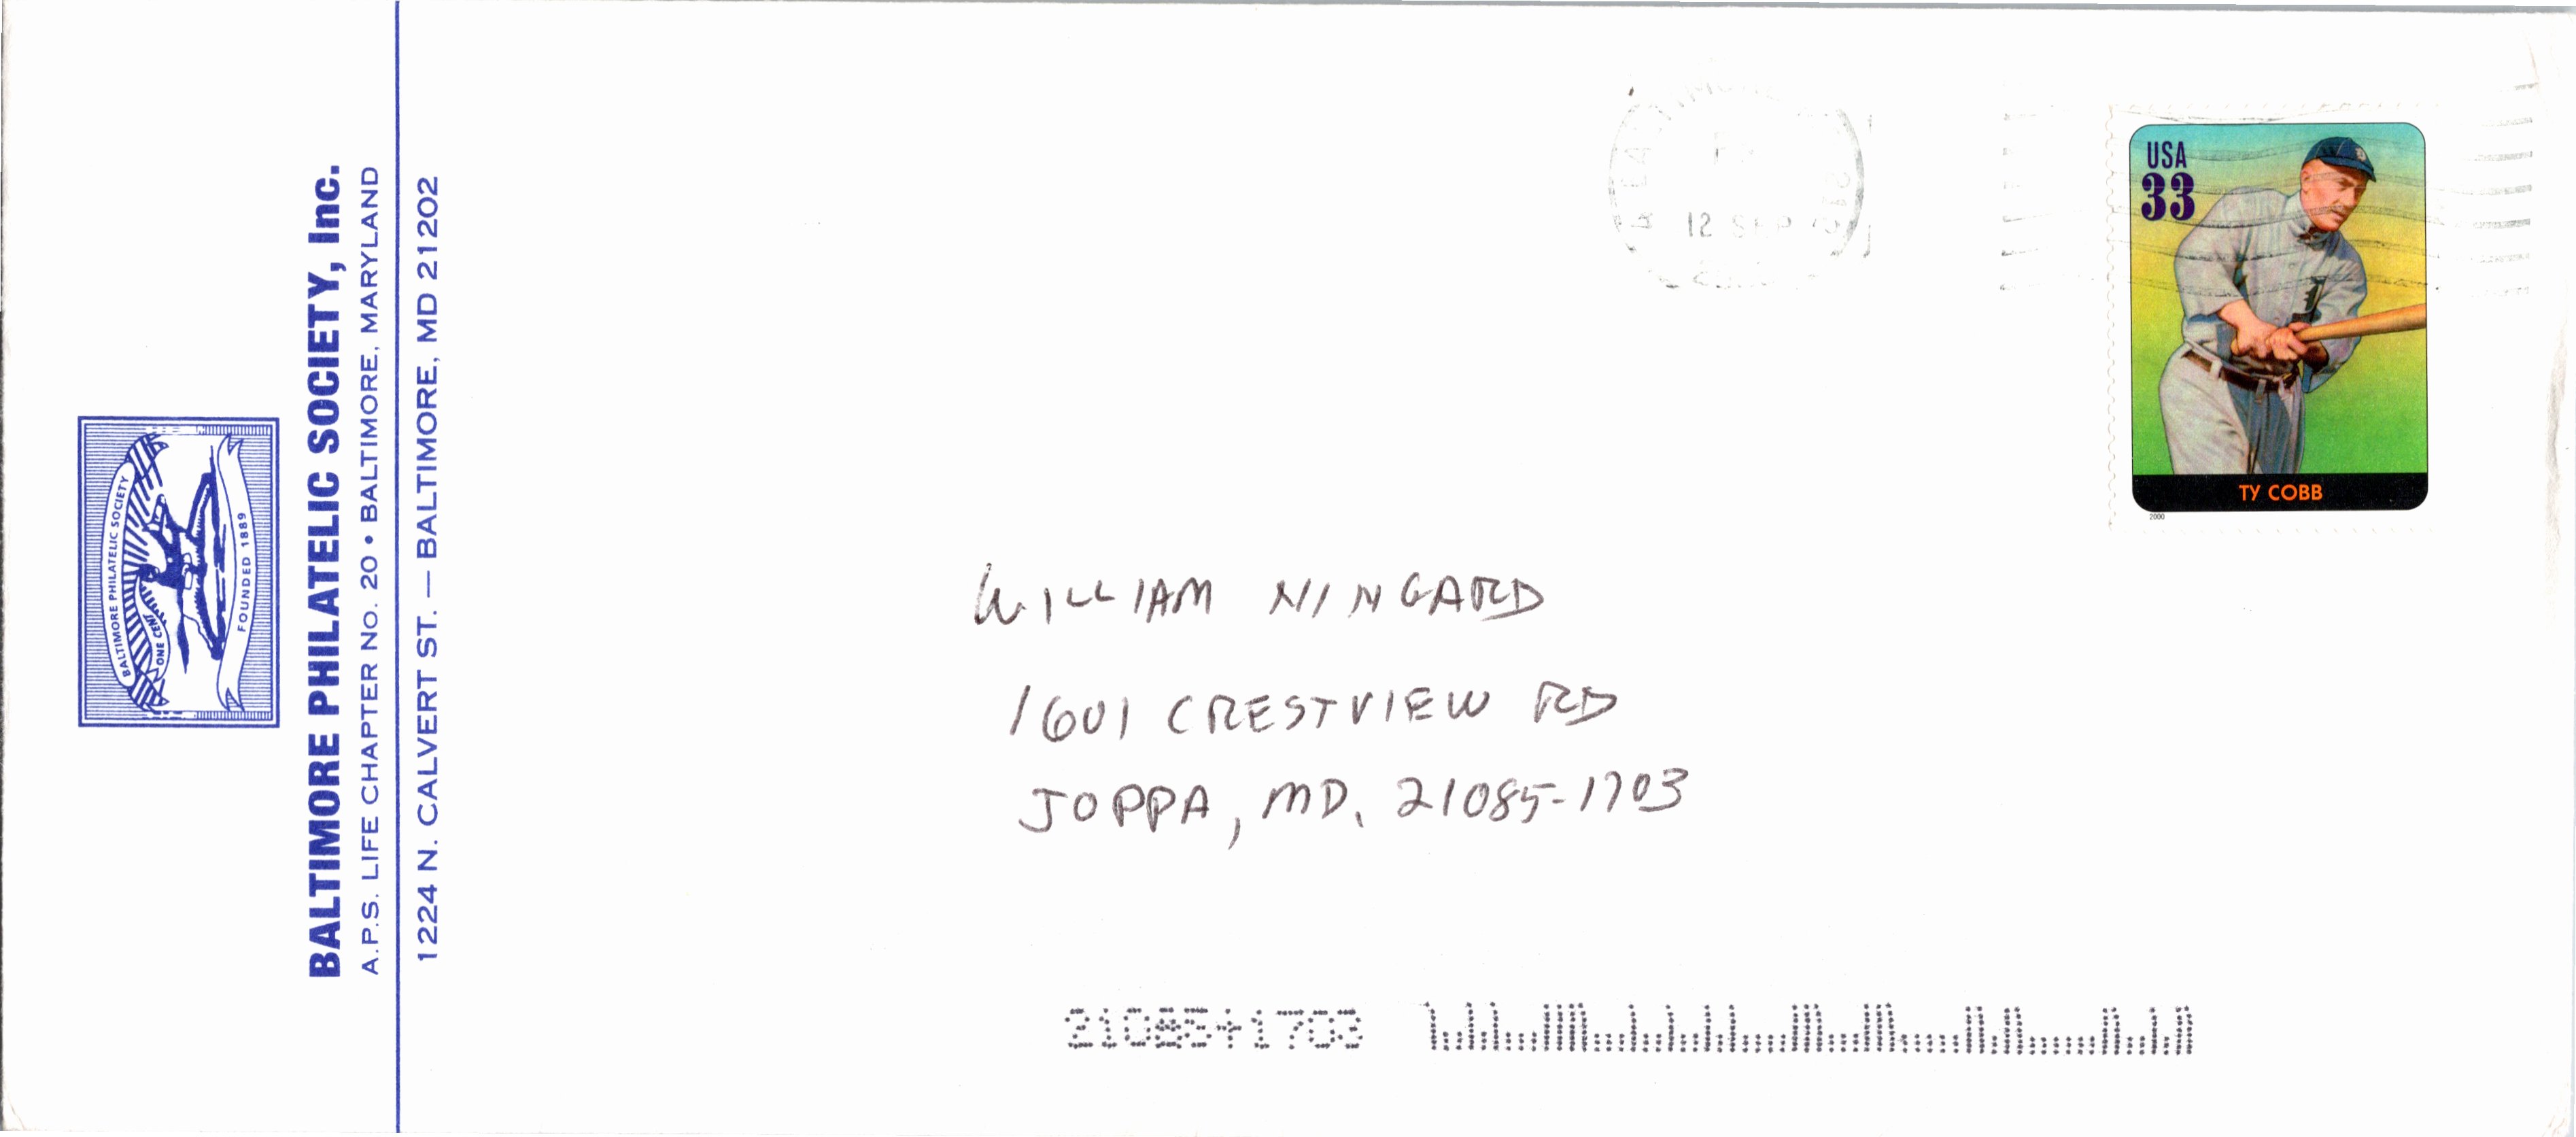 BALTIMORE PHILATELIC SOCIETY
ONE CENT
FOUNDED 1889
BALTIMORE PHILATELIC SOCIETY, Inc.
A.P.S. LIFE CHAPTER No. 20 • BALTIMORE, MARYLAND
1224 N. CALVERT ST. — BALTIMORE, MD 21202
12 SEP
USA
33
TY COBB
2000
WILLIAM NINGARD
1601 CRESTVIEW RD
JOPPA, MD. 21085-1703
21085+1703